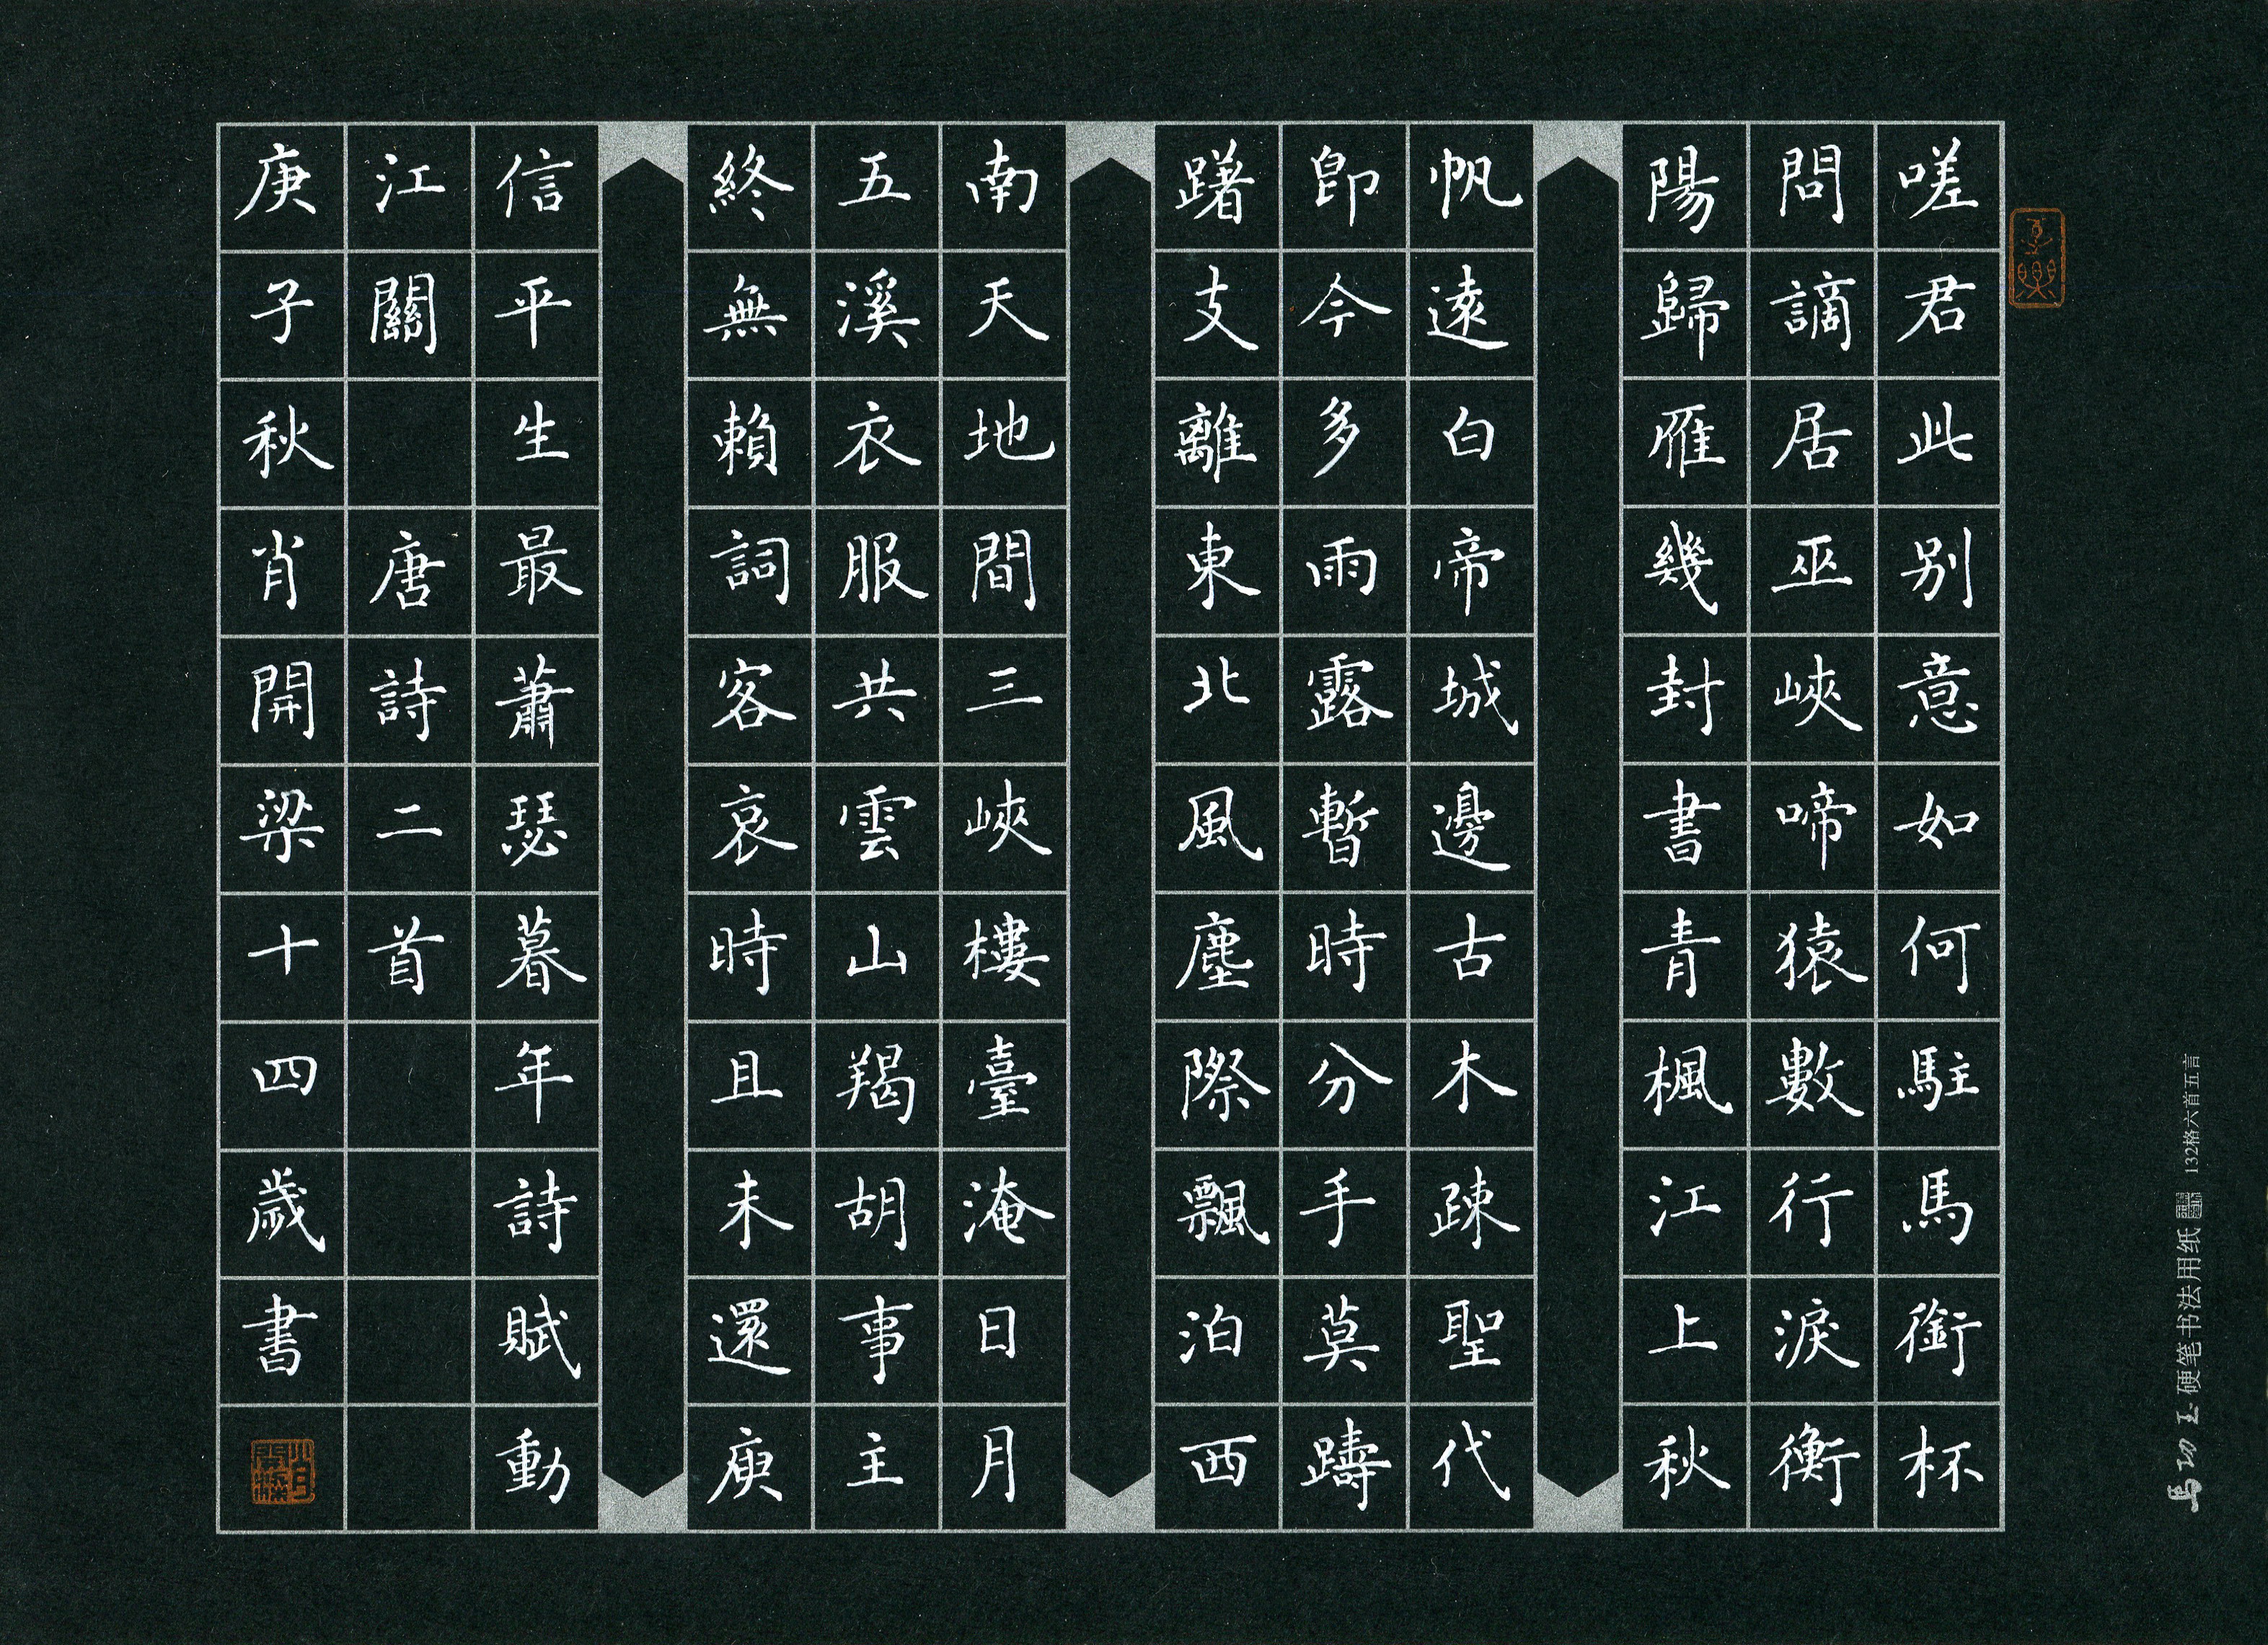 嗟君此别意如何駐馬銜杯
問謫居巫峽啼猿數行淚衡
陽歸雁幾封書青楓江上秋
帆遠白帝城邊古木疎聖代
即今多雨露暫時分手莫躊
躇支離東北風塵際飄泊西
南天地間三峽樓臺淹日月
五溪衣服共雲山羯胡事主
終無賴詞客哀時且未還庾
信平生最蕭瑟暮年詩賦動
江關 唐詩二首
庚子秋肖開梁十四歲書
硬笔书法用纸 132格六首五言